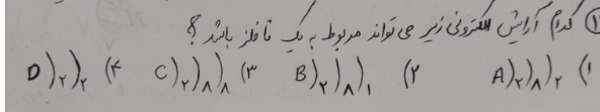 ۱) کدام آرایش الکترونی زیر می تواند مربوط به یک نافلز باشد؟
۱) A)۲)۸)۲ ۲) B)۲)۸)۱ ۳) C)۲)۸)۸ ۴) D)۲)۲